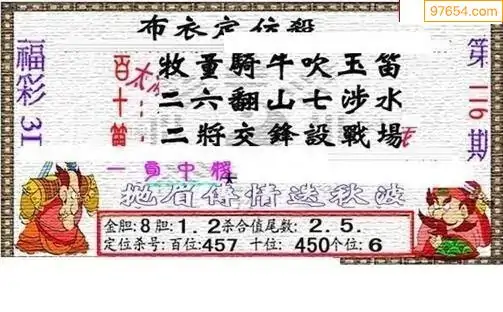 97654.com
布衣定位殺
福彩3D
第116期
牧童騎牛吹玉笛
二六翻山七涉水
二將交鋒設戰場
百
十
笛
一
中
抛眉傳情送秋波
金胆:8胆:1.2杀合值尾数:2.5.
定位杀号:百位:457 十位:450个位:6